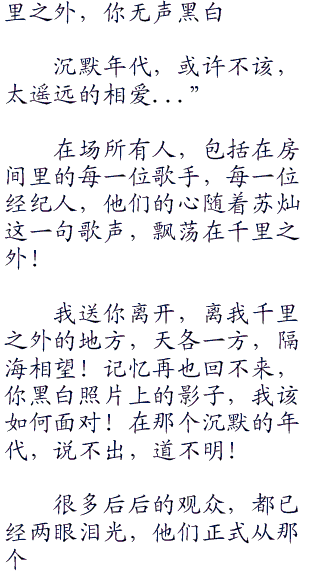 里之外，你无声黑白
沉默年代，或许不该，
太遥远的相爱...”
在场所有人，包括在房
间里的每一位歌手，每一位
经纪人，他们的心随着苏灿
这一句歌声，飘荡在千里之
外！
我送你离开，离我千里
之外的地方，天各一方，隔
海相望！记忆再也回不来，
你黑白照片上的影子，我该
如何面对！在那个沉默的年
代，说不出，道不明！
很多后后的观众，都已
经两眼泪光，他们正式从那
个